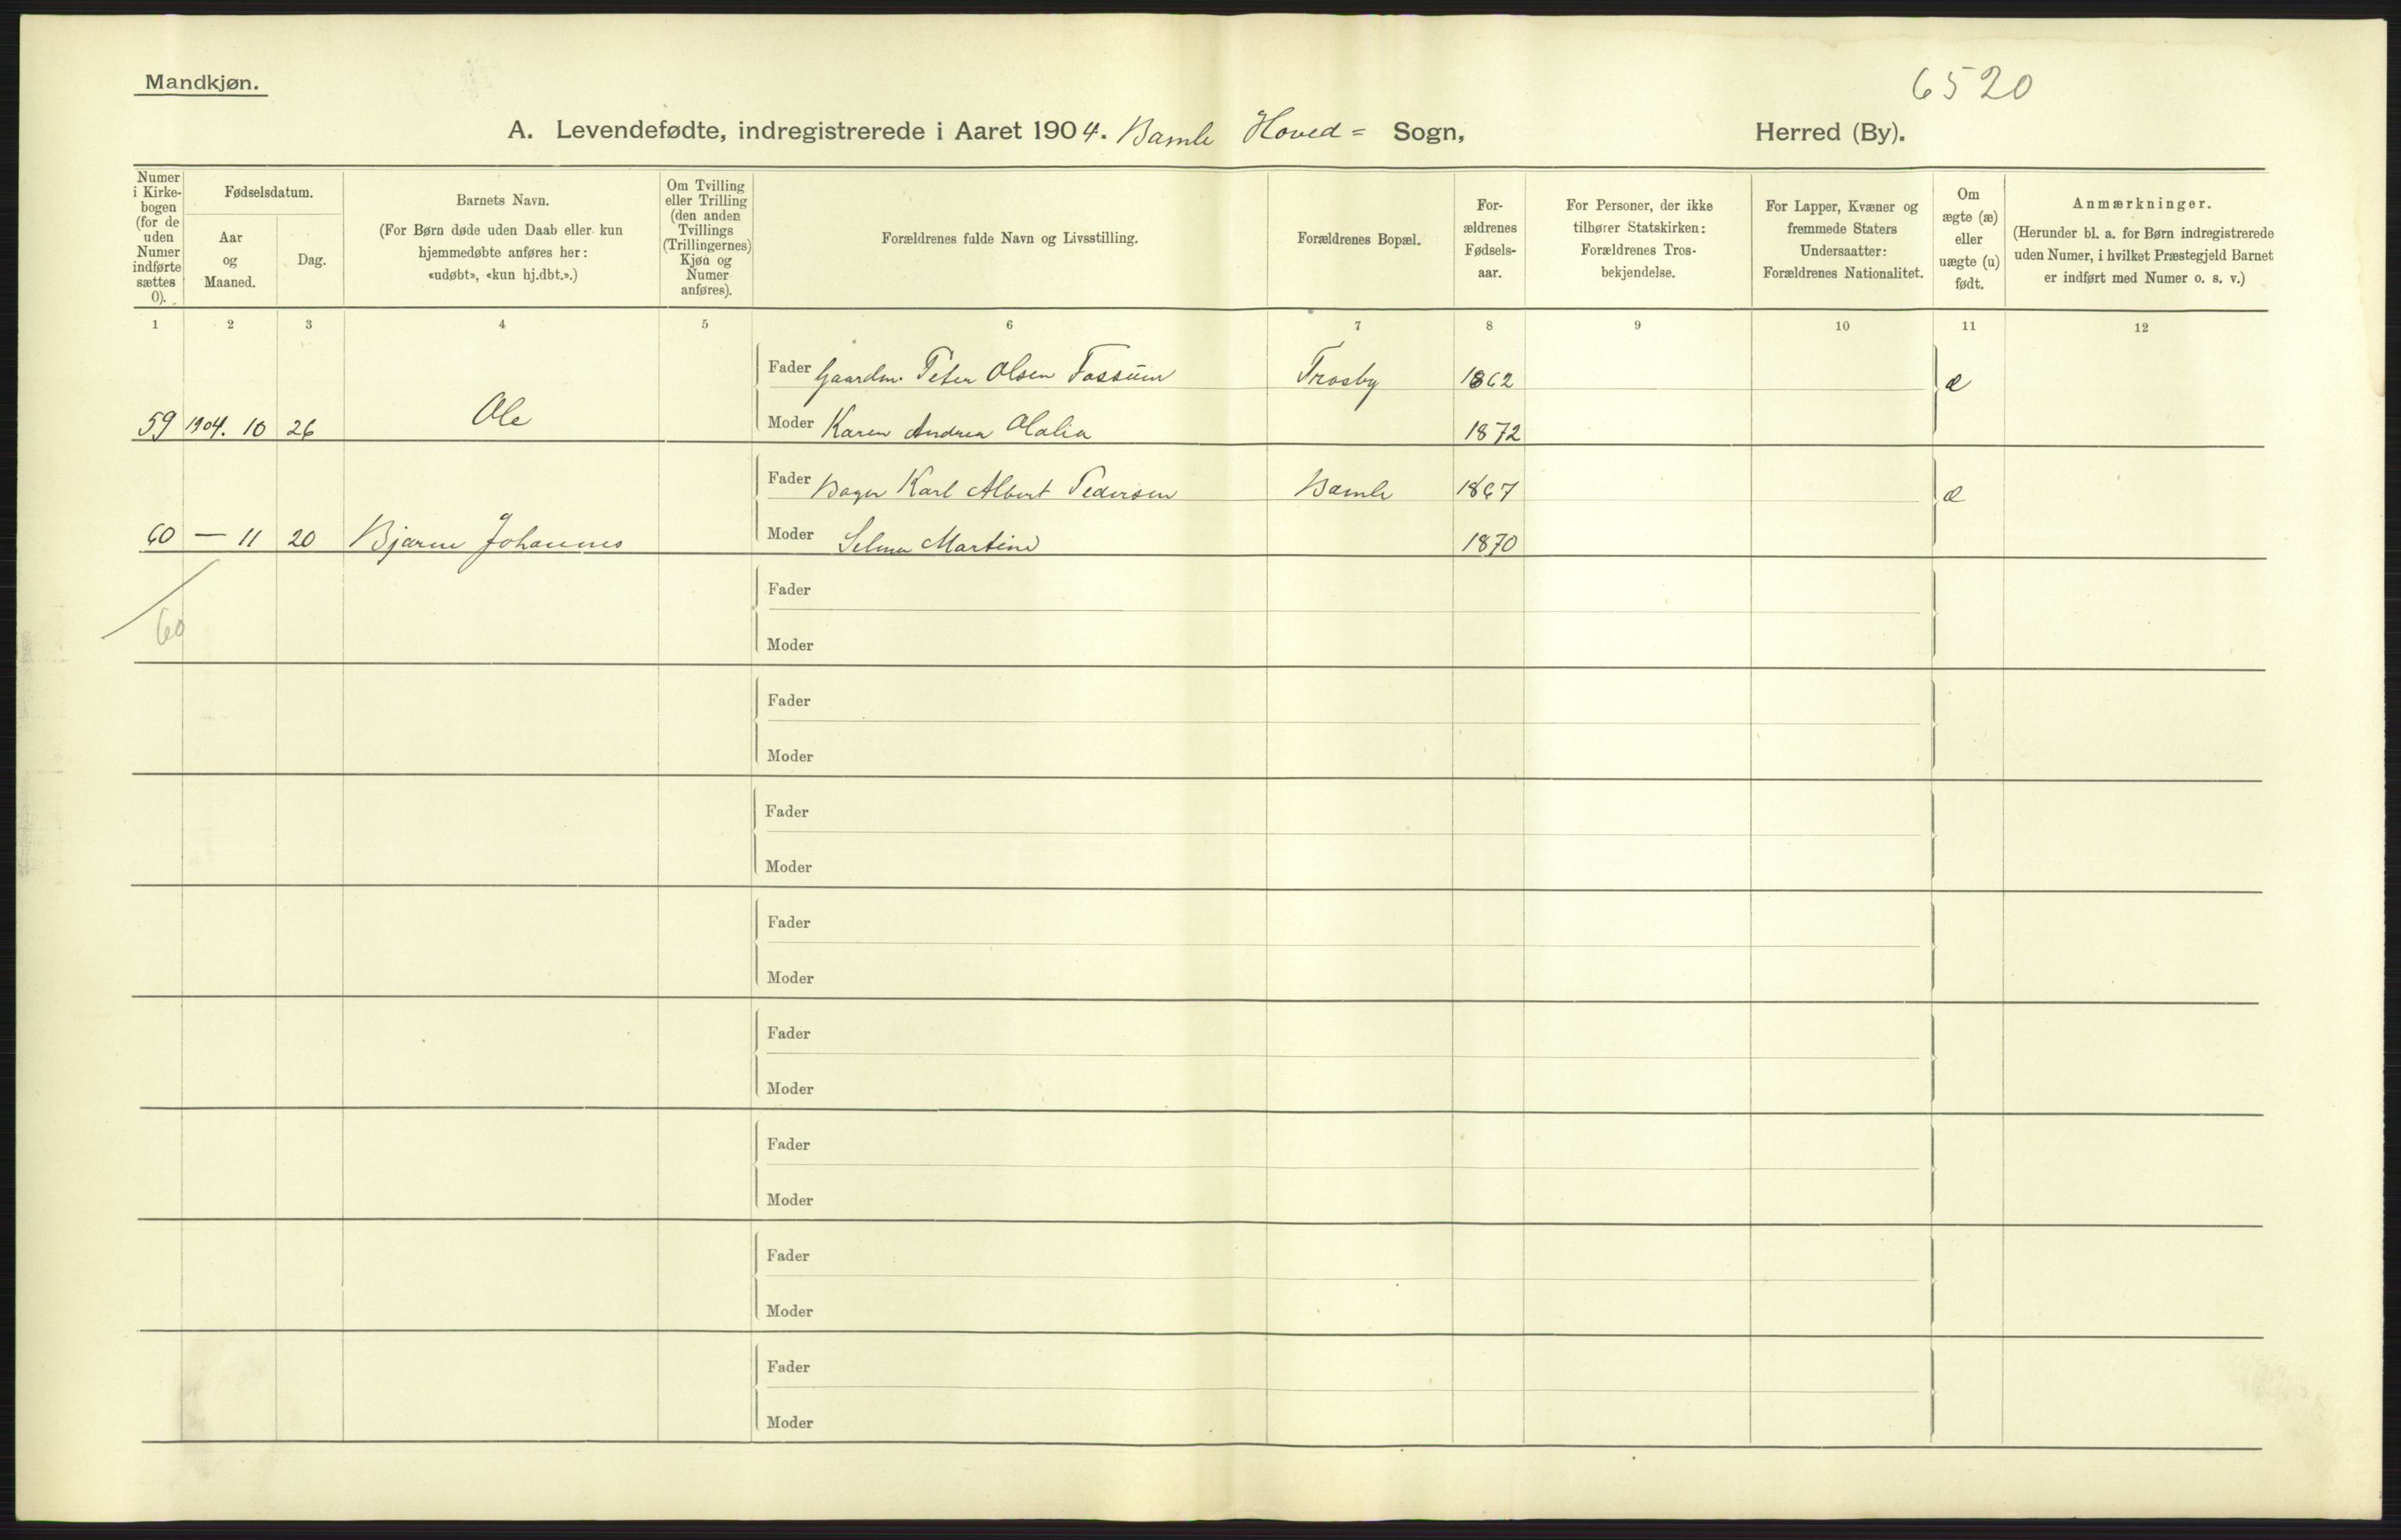 Mandkjøn.
6520
A. Levendefødte, indregistrerede i Aaret 1904. Bamle Hoved= Sogn, Herred (By).
Numer i Kirkebogen (for de uden Numer indførte sættes 0).
Fødselsdatum.
Aar og Maaned.
Dag.
Barnets Navn.
(For Børn døde uden Daab eller kun
hjemmedøbte anføres her:
«udøbt», «kun hj.dbt.».)
Om Tvilling
eller Trilling
(den anden
Tvillings
(Trillingernes)
Kjøn og
Numer
anføres).
Forældrenes fulde Navn og Livsstilling.
Forældrenes Bopæl.
For-
ældrenes
Fødsels-
aar.
For Personer, der ikke
tilhører Statskirken:
Forældrenes Tros-
bekjendelse.
For Lapper, Kvæner og
fremmede Staters
Undersaatter:
Forældrenes Nationalitet.
Om
ægte (æ)
eller
uægte (u)
født.
Anmærkninger.
(Herunder bl. a. for Børn indregistrerede
uden Numer, i hvilket Præstegjeld Barnet
er indført med Numer o. s. v.)
1 2 3 4 5 6 7 8 9 10 11 12
Fader Gaardm. Peter Olsen Fossum Trosby 1862 æ
59 1904. 10 26 Ole Moder Karen Andrea Olalia 1872
Fader Bager Karl Albert Pedersen Bamle 1867 æ
60 — 11 20 Bjarne Johannes Moder Selma Martine 1870
Fader
60
Moder
Fader
Moder
Fader
Moder
Fader
Moder
Fader
Moder
Fader
Moder
Fader
Moder
Fader
Moder